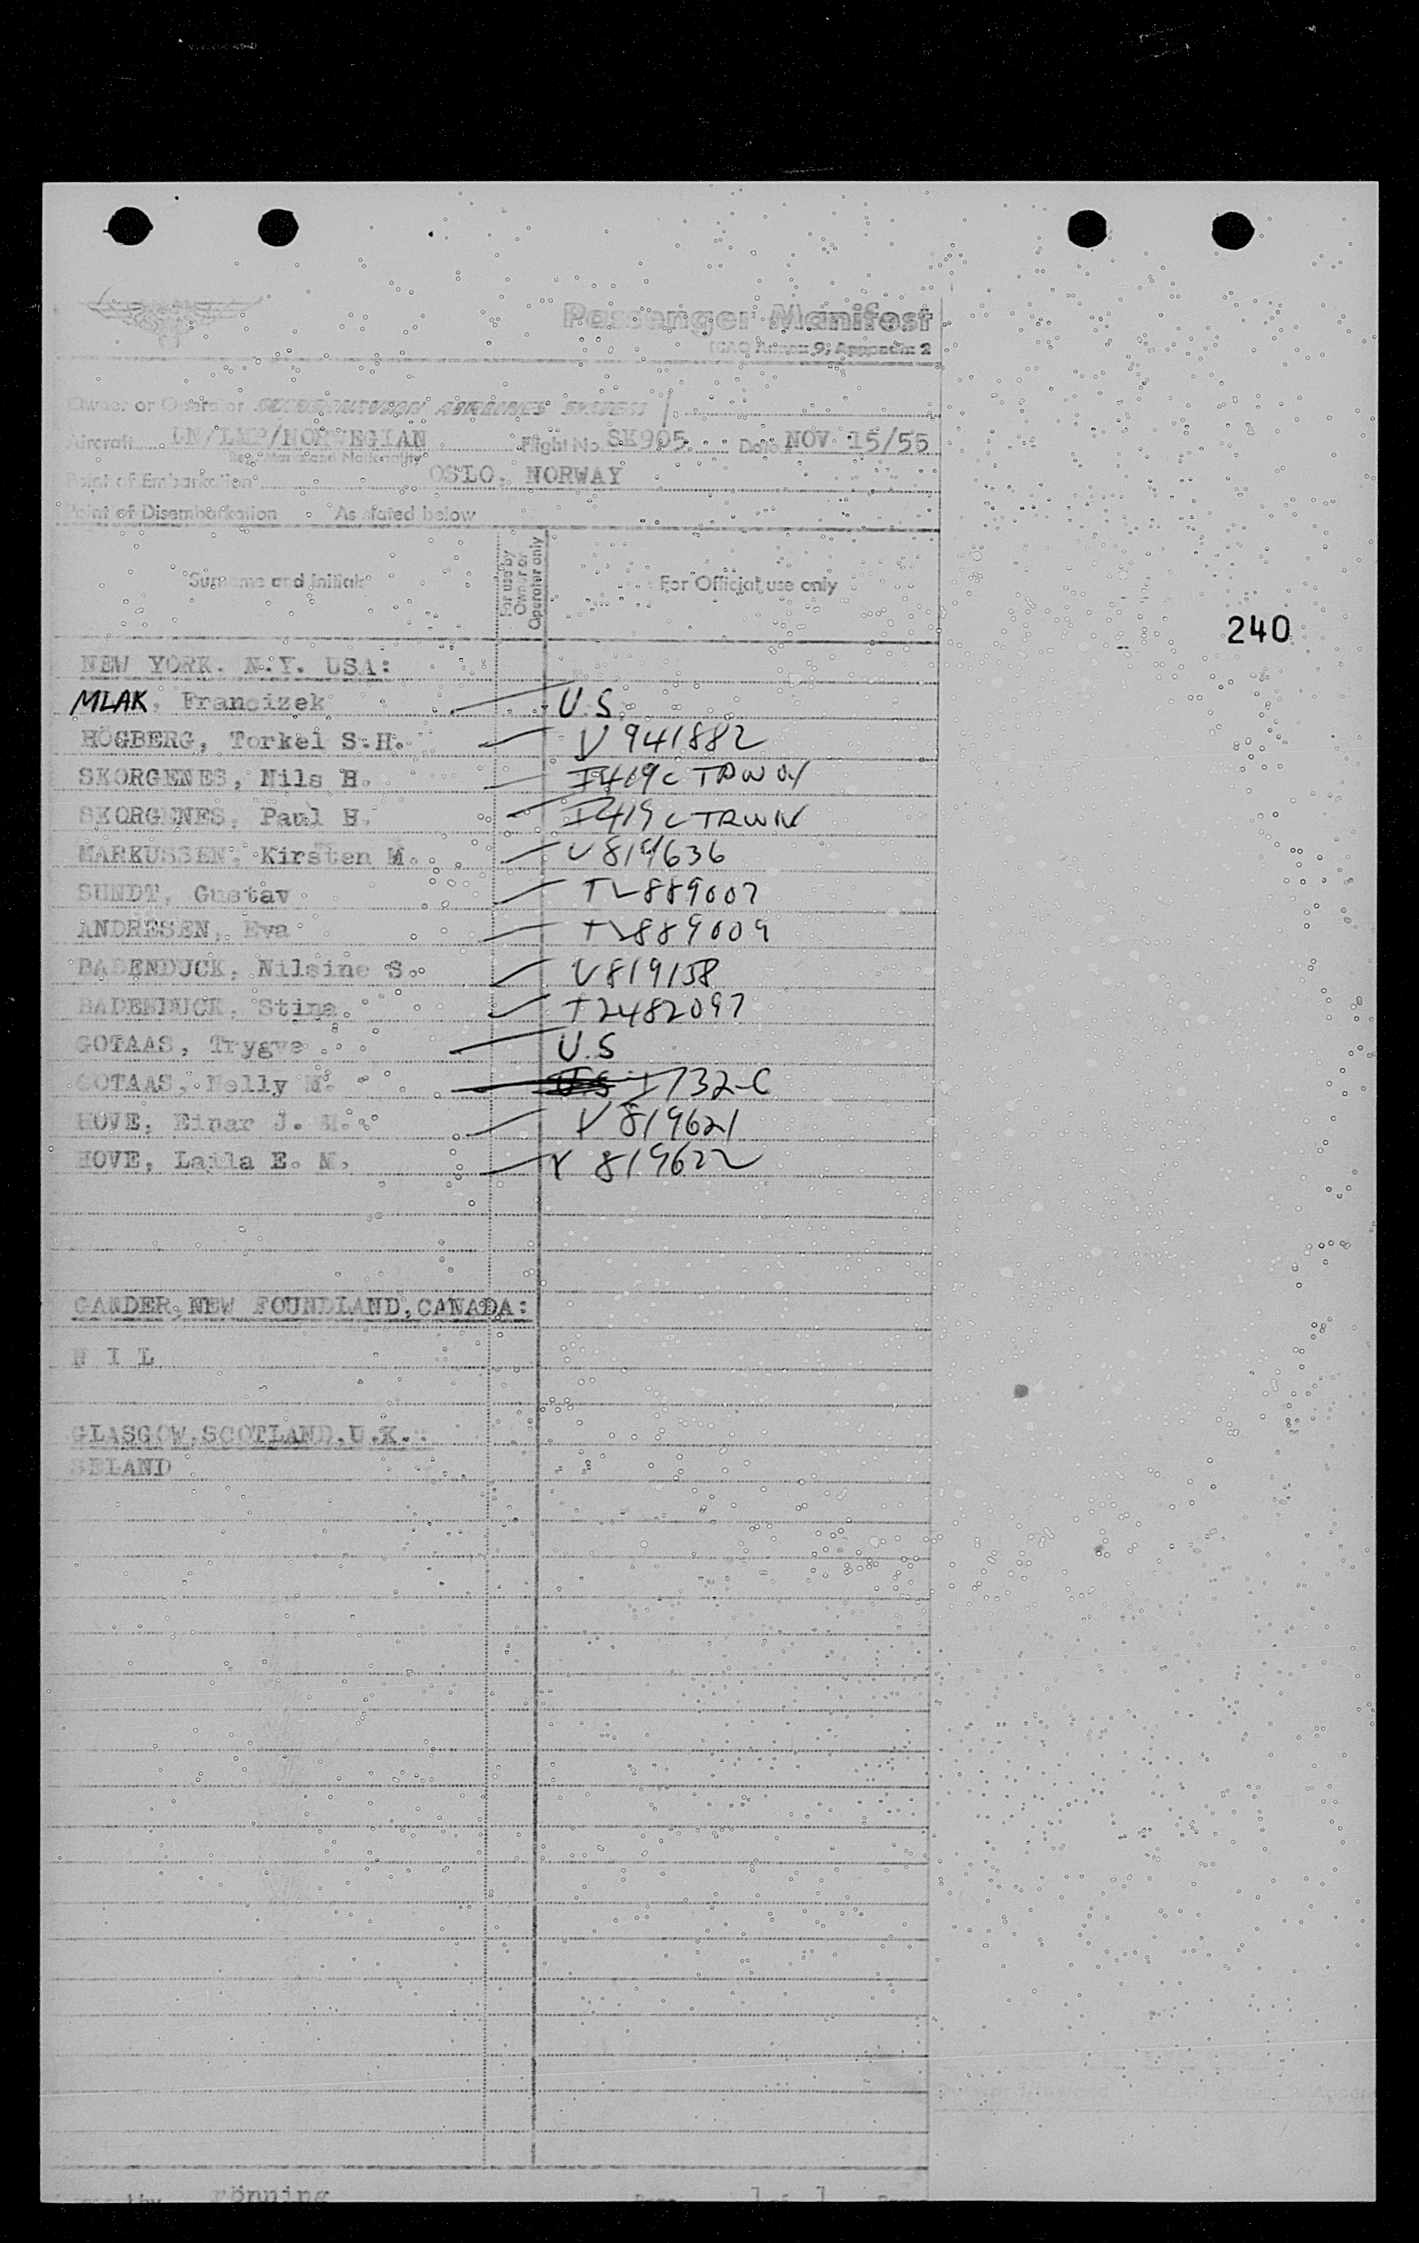 Passenger Manifest
ICAO Annex 9, Appendix 2
Owner or Operator SCANDINAVIAN AIRLINES SYSTEM
Aircraft LN/LMP/NORWEGIAN Flight No. SK905. Date NOV 15/55
Reg. Marks and Nationality
Point of Embarkation OSLO, NORWAY
Point of Disembarkation As stated below
Surname and initials For use by Owner or Operator only For Official use only
240
NEW YORK. N.Y. USA:
MLAK, Francizek U.S.
HÖGBERG, Torkel S.H. V 941882
SKORGENES, Nils H. I419C
SKORGENES, Paul H. I419C
MARKUSSEN, Kirsten M. V819636
SUNDT, Gustav 889007
ANDRESEN, Eva 889009
BADENDUCK, Nilsine S. V819158
BADENDUCK, Stina T2482097
GOTAAS, Trygve U.S
GOTAAS, Nelly M. U.S I732-C
HOVE, Einar J. M. V 819621
HOVE, Laila E. M. V 819622
GANDER, NEW FOUNDLAND, CANADA:
N I L
GLASGOW, SCOTLAND, U.K.:
SELAND
rönning 1 of 1